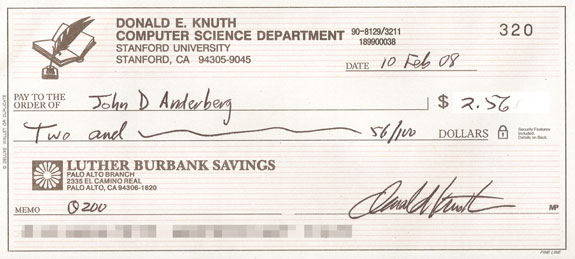 DONALD E. KNUTH
COMPUTER SCIENCE DEPARTMENT
STANFORD UNIVERSITY
STANFORD, CA 94305-9045
90-8129/3211
189900038
320
DATE 10 Feb 08
PAY TO THE
ORDER OF John D Anderberg $ 2.56
Two and 56/100 DOLLARS
Security Features
Included.
Details on Back.
LUTHER BURBANK SAVINGS
PALO ALTO BRANCH
2335 EL CAMINO REAL
PALO ALTO, CA 94306-1620
MEMO 0200
Donald Knuth
MP
FINE LINE